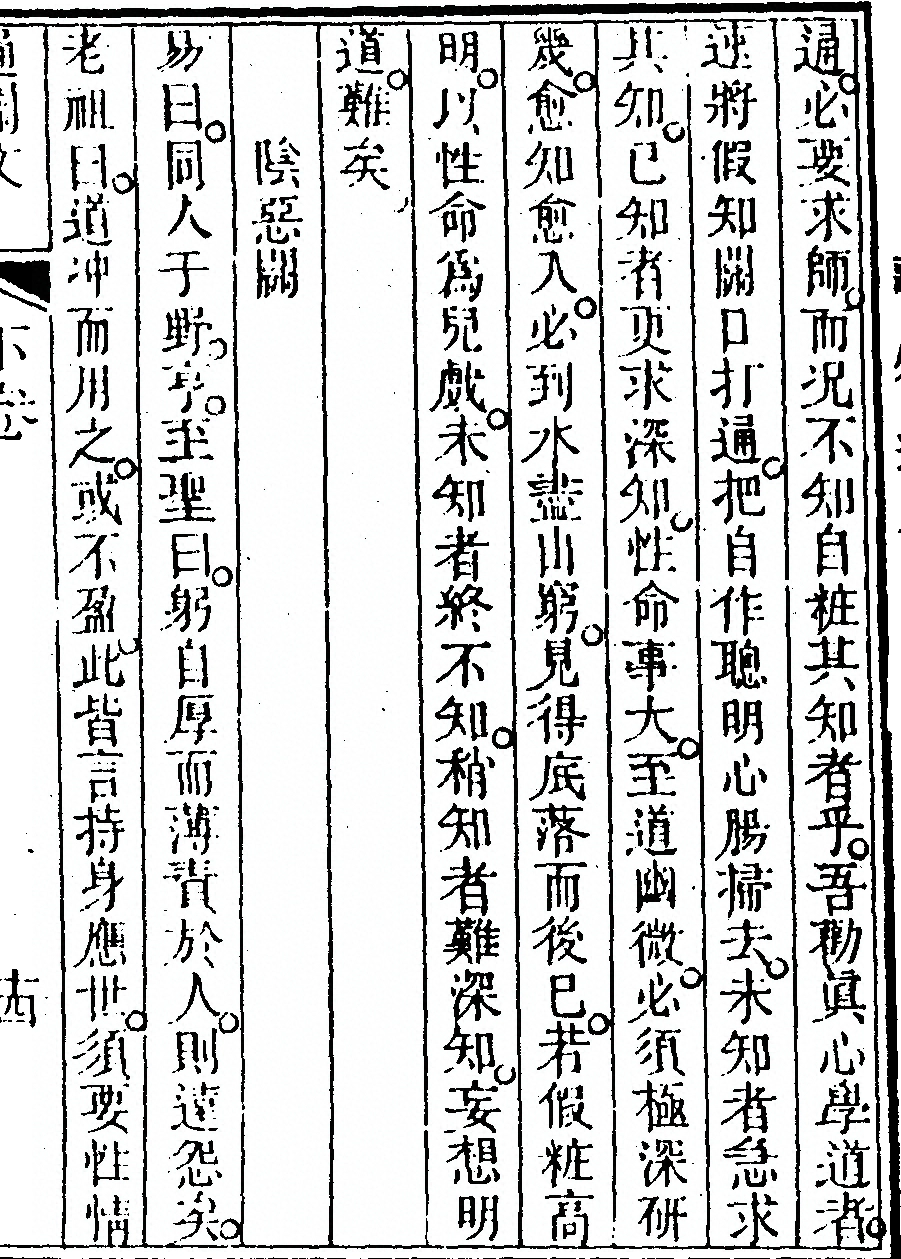 通必要求師而况不知自粧其知者乎吾勸眞心學道者
速將假知關口打通把自作聰明心腸掃去未知者急求
其知已知者更求深知性命事大至道幽微必須極深研
幾愈知愈入必到水盡山窮見得底落而後已若假粧高
明以性命爲兒戲未知者終不知稍知者難深知妄想明
道難矣
陰惡關
易曰同人于野亨至聖曰躬自厚而薄責於人則遠怨矣
老祖曰道冲而用之或不盈此皆言持身應世須要性情
通關文
下卷